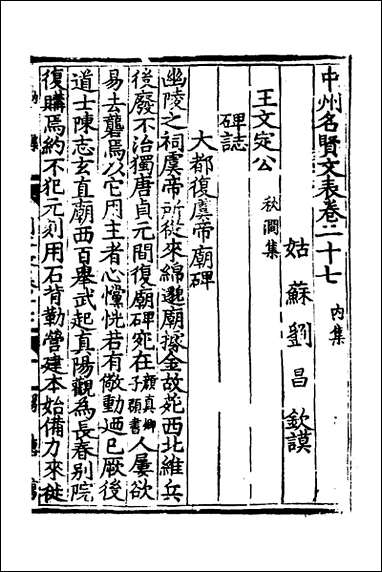 中州名賢文表卷二十七
內集
姑蘇劉昌欽謨
王文定公
秋澗集
碑誌
大都復虞帝廟碑
幽陵之祠虞帝所從來綿邈廟據金故苑西北維兵
後廢不治獨唐貞元間復廟碑宛在顔真卿子頵書人屢欲
易去礱焉以它用主者心戃恍若有儆動迺已厥後
道士陳志玄直廟西百舉武起真陽觀為長春別院
復購焉約不犯元刻用石背勒營建本始備力來徙